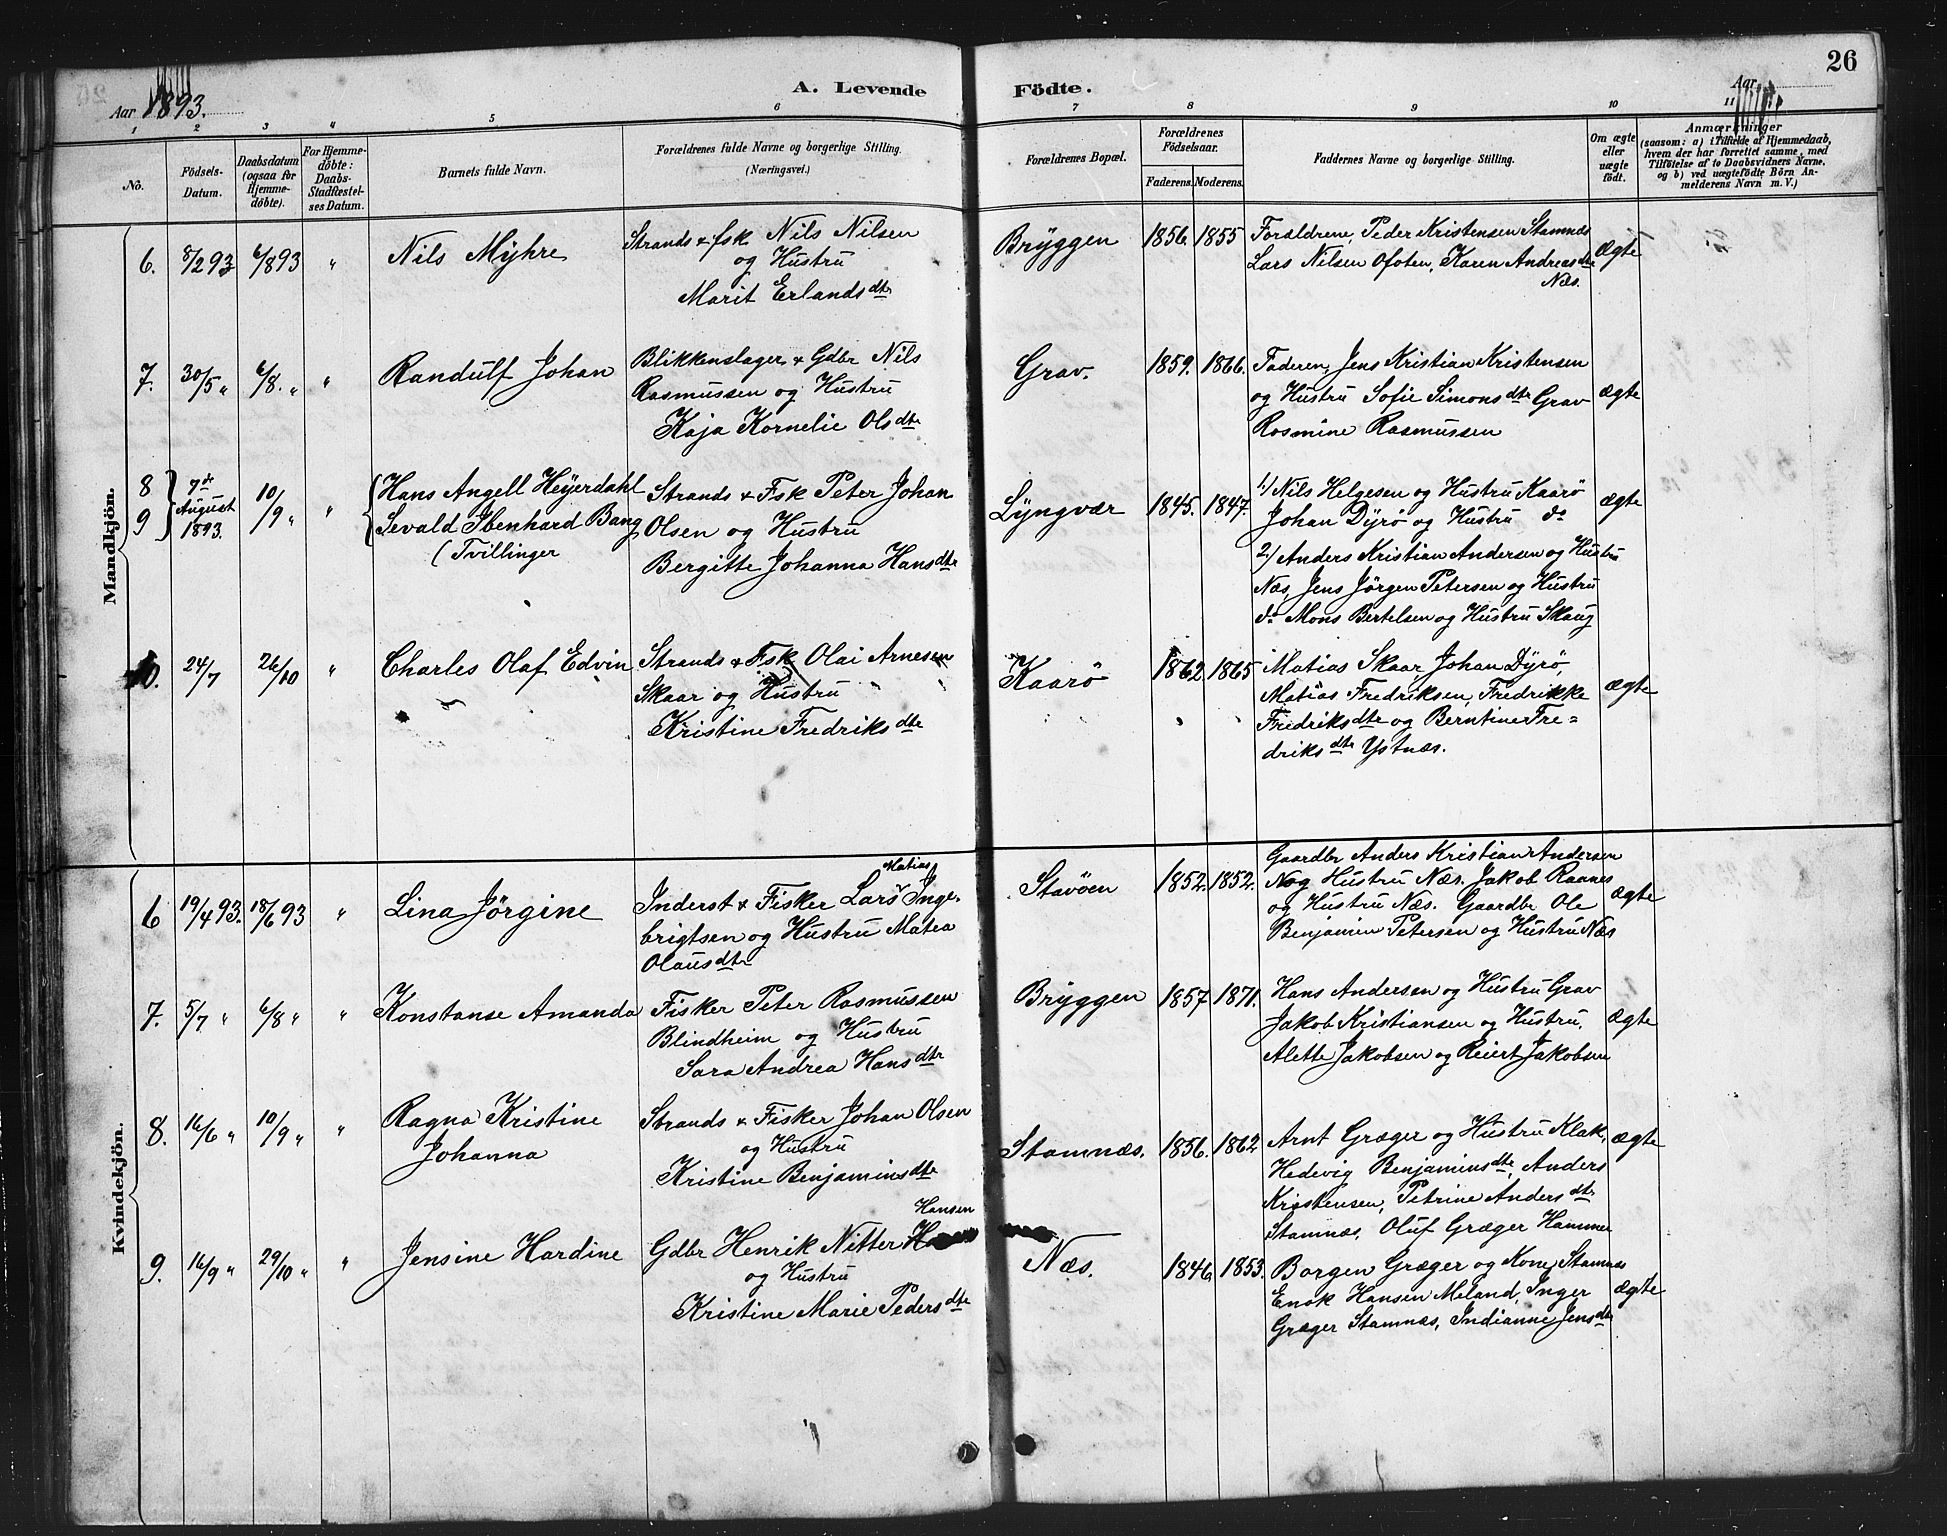 26
Aar 1893.
A. Levende Födte.
Aar
1 2 3 4 5 6 7 8 9 10 11
No.
Födsels-Datum.
Daabsdatum (ogsaa for Hjemme-döbte).
For Hjemme-döbte: Daabs-Stadfæstel-ses Datum.
Barnets fulde Navn.
Forældrenes fulde Navne og borgerlige Stilling. (Næringsvei.)
Forældrenes Bopæl.
Forældrenes Födselsaar.
Faderens. Moderens.
Faddernes Navne og borgerlige Stilling.
Om ægte eller uægte födt.
Anmærkninger
(saasom: a) i Tilfælde af Hjemmedaab, hvem der har forrettet samme, med Tilföielse af to Daabsvidners Navne, og b) ved uægtefödte Börn An-melderens Navn m. V.)
Mandkjön.
6. 8/2 93 6/8 93 " Nils Myhre
Strands & fsk Nils Nilsen
og Hustru
Marit Erlandsdtr
Bryggen 1856. 1855
Forældrene, Peder Kristensen Stamnæs
Lars Nilsen Ofoten, Karen Andreasdtr
Næs.
Ægte
7. 30/5 " 6/8. " " Randulf Johan
Blikkenslager & Gdbr Nils
Rasmussen og Hustru
Kaja Kornelie Olsdtr
Grav. 1859. 1866.
Faderen, Jens Kristian Kristensen
og Hustru Sofie Simonsdtr Grav
Rasmine Rasmussen
ægte
8
9
7de August 1893.
10/9 " "
Hans Angell Heyerdahl
Sevald Ibenhard Bang
(Tvillinger
Strands & Fsk Peter Johan
Olsen og Hustru
Bergitte Johanna Hansdtr
Lyngvær 1845. 1847.
1) Nils Helgesen og Hustru Kaarø
Johan Dyrø og Hustru do
2) Anders Kristian Andersen og Hustru
Næs, Jens Jörgen Petersen og Hustru
do Mons Bertelsen og Hustru Skaug
ægte
10. 24/7 26/10 " Charles Olaf Edvin
Strands & Fsk Olai Arnesen
Skaar og Hustru
Kristine Fredriksdtr
Kaarö 1862 1865
Matias Skaar, Johan Dyrø,
Matias Fredriksen, Fredrikke
Fredriksdtr og Berntine Fre=
driksdtr Ystnæs.
ægte
Kvindekjön.
6 19/4 93. 18/6 93 " Lina Jörgine
Matias
Inderst & Fisker Lars Inge-
brigtsen og Hustru Matea
Olausdtr
Stavöen 1852. 1852.
Gaardbr Anders Kristian Andersen
N og Hustru Næs. Jakob Raanes
og Hustru Næs. Gaardbr Ole
Benjamin Petersen og Hustru Næs
ægte
7. 5/7 " 6/8 " " Konstanse Amanda
Fisker Peter Rasmussen
Blindheim og Hustru
Sara Andrea Hansdtr
Bryggen 1857 1871.
Hans Andersen og Hustru Grav
Jakob Kristiansen og Hustru,
Alette Jakobsen og Reiert Jakobsen
ægte
8. 16/6 " 10/9 " " Ragna Kristine
Johanna
Strands & Fisker Johan Olsen
og Hustru
Kristine Benjaminsdtr
Stamnæs. 1856. 1862
Arnt Græger og Hustru Klak,
Hedevig Benjaminsdtr, Anders
Kristensen, Petrine Andersdtr
Stamnæs, Oluf Græger Hammer
ægte
9. 16/9 " 29/10 " " Jensine Hardine
Hansen
Gdbr Henrik Nitter
og Hustru
Kristine Marie Pedersdtr
Næs. 1846. 1853.
Borgen Græger og Kone, Stamnæs
Enok Hansen Meland, Inger
Græger Stamnæs, Indianne Jensdtr
ægte